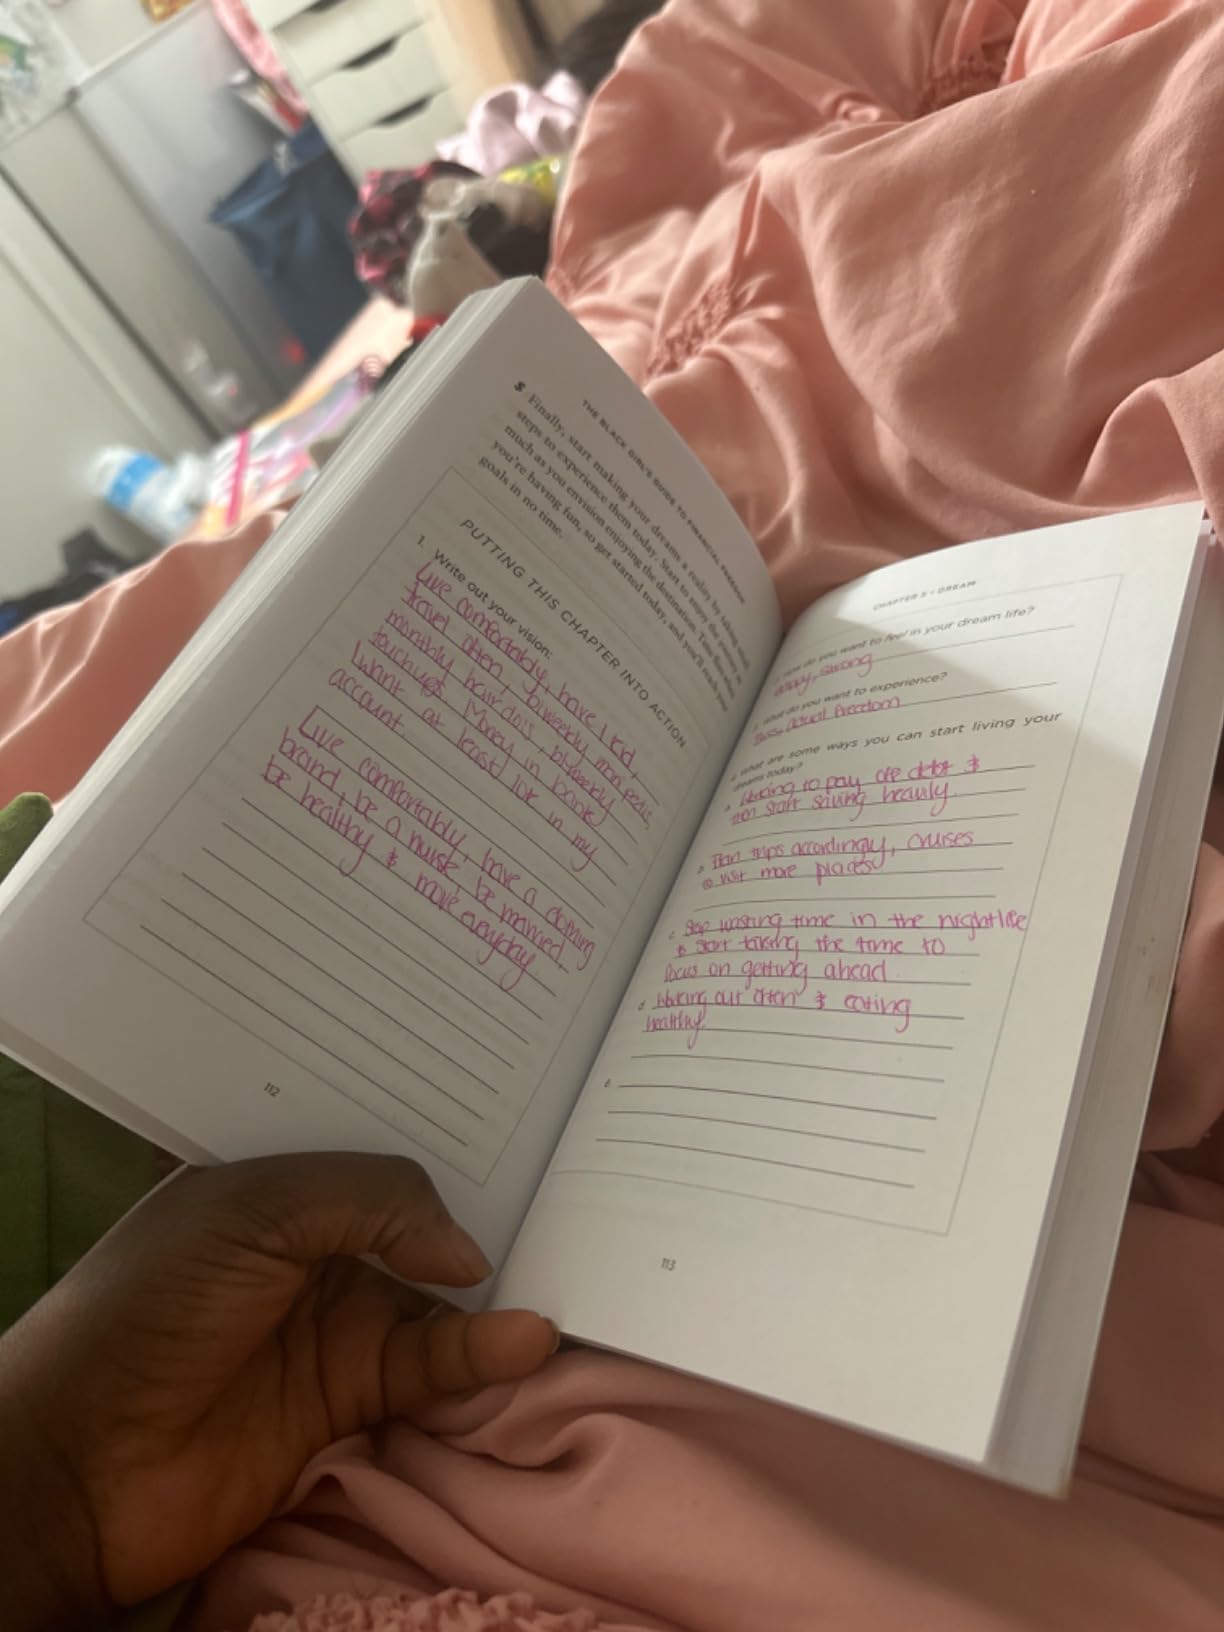 THE BLACK GIRL'S GUIDE TO FINANCIAL FREEDOM
5 Finally, start making your dreams a reality by taking small
steps to experience them today. Start to enjoy the journey as
much as you envision enjoying the destination. Time flies when
you're having fun, so get started today, and you'll reach your
goals in no time.
PUTTING THIS CHAPTER INTO ACTION
1. Write out your vision:
Live comfortably, have 1 kid,
travel often, biweekly mani pedis,
monthly hairdo's, biweekly
touchups. Money in bank
I want at least 10k in my
account.
Live comfortably, have a clothing
brand, be a nurse, be married,
be healthy & move everyday
112
CHAPTER 5 • DREAM
How do you want to feel in your dream life?
Happy, strong
What do you want to experience?
Actual freedom
What are some ways you can start living your
dreams today?
a. Working to pay off debt &
then start saving heavily.
b. Plan trips accordingly, cruises
to visit more places
c. Stop wasting time in the nightlife
& start taking the time to
focus on getting ahead.
d. Working out often & eating
healthy.
e.
113